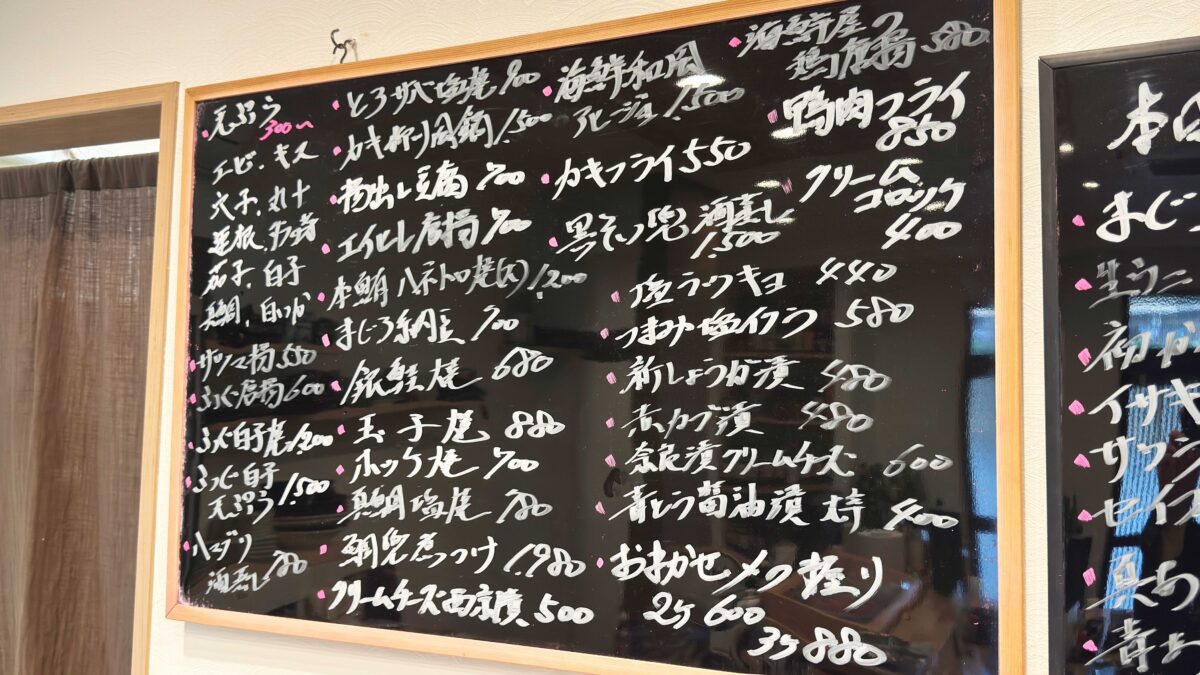 天ぷら
300〜
エビ、キス
穴子、丸十
蓮根
茄子、白子
真鯛、白いか
サツマ揚 550
ふぐ唐揚 600
ふぐ白子焼 1,200
ふぐ白子
天ぷら 1,500
ハマグリ
酒蒸し 780
とろサバ塩焼 900
カキ 1,500
揚出し豆腐 700
エイヒレ唐揚 700
本鮪ハネトロ焼(大) 1,200
まぐろ納豆 700
銀鮭焼 680
玉子焼 880
ホッケ焼 700
真鯛塩焼 780
鯛兜煮つけ 1,980
クリームチーズ西京漬 500
海鮮和風
アヒージョ 1,500
カキフライ 550
黒そい兜 酒蒸し
1,500
塩ラッキョ 440
つまみ塩イクラ 580
新しょうが漬 480
赤カブ漬 480
奈良漬クリームチーズ 600
青とう醤油漬 400
おまかせ 握り
2ケ 600
3ケ 880
海鮮屋の
鶏唐揚 580
鴨肉フライ
850
クリーム
コロッケ
400
本
まぐ
生ウニ
初か
イサキ
サワラ
セイズ
真あ
青